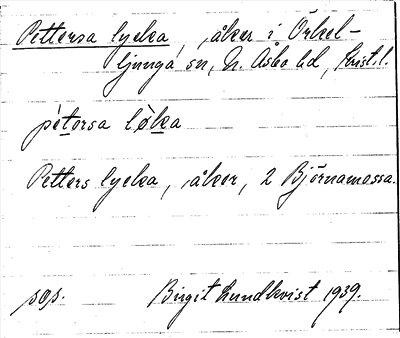 Pettersa lycka, åker i Örkel-
ljunga sn, N. Åsbo hd, Krist. l.
pètersa lỳka
Petters lycka, åker, 2 Björnamossa.
sgs. Birgit Lundkvist 1939.